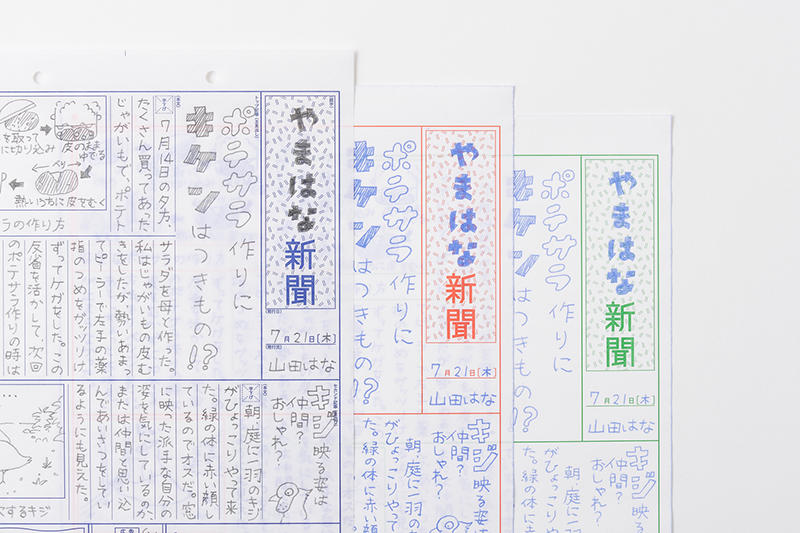 やまはな新聞
7月21日[木]
山田はな
ポテサラ作りに
キケンはつきもの!?
7月14日の夕方、
たくさん買ってあった
じゃがいもで、ポテト
サラダを母と作った。
私はじゃがいもの皮む
きをしたが勢いあまっ
てピーラーで左手の薬
指のつめをガッツリけ
ずってケガをした。この
反省を活かして次回
のポテサラ作りの時は
を取って
に切り込み
皮のまま
ゆでる
熱いうちに皮をむく
ラの作り方
キジ映る姿は
仲間?
おしゃれ?
朝、庭に一羽のキジ
がひょっこりやって来
た。緑の体に赤い顔し
ているのでオスだ。窓
に映った派手な自分の
姿を気にしているのか、
または仲間と思い込
んであいさつをしてい
るようにも見えた。
するキジ
やまはな新聞
7月21日[木]
山田はな
ポテサラ作りに
キケンはつきもの!?
キジ映る姿は
仲間?
おしゃれ?
朝、庭に一羽の
がひょっこりやって
た。緑の体に赤い顔
やまはな新聞
7月21日[木]
山田はな
ポテサラ作りに
キケンはつきもの!?
キジ映る姿は
仲間?
おしゃれ?
朝、庭に一
がひょっこり
た。緑の体に